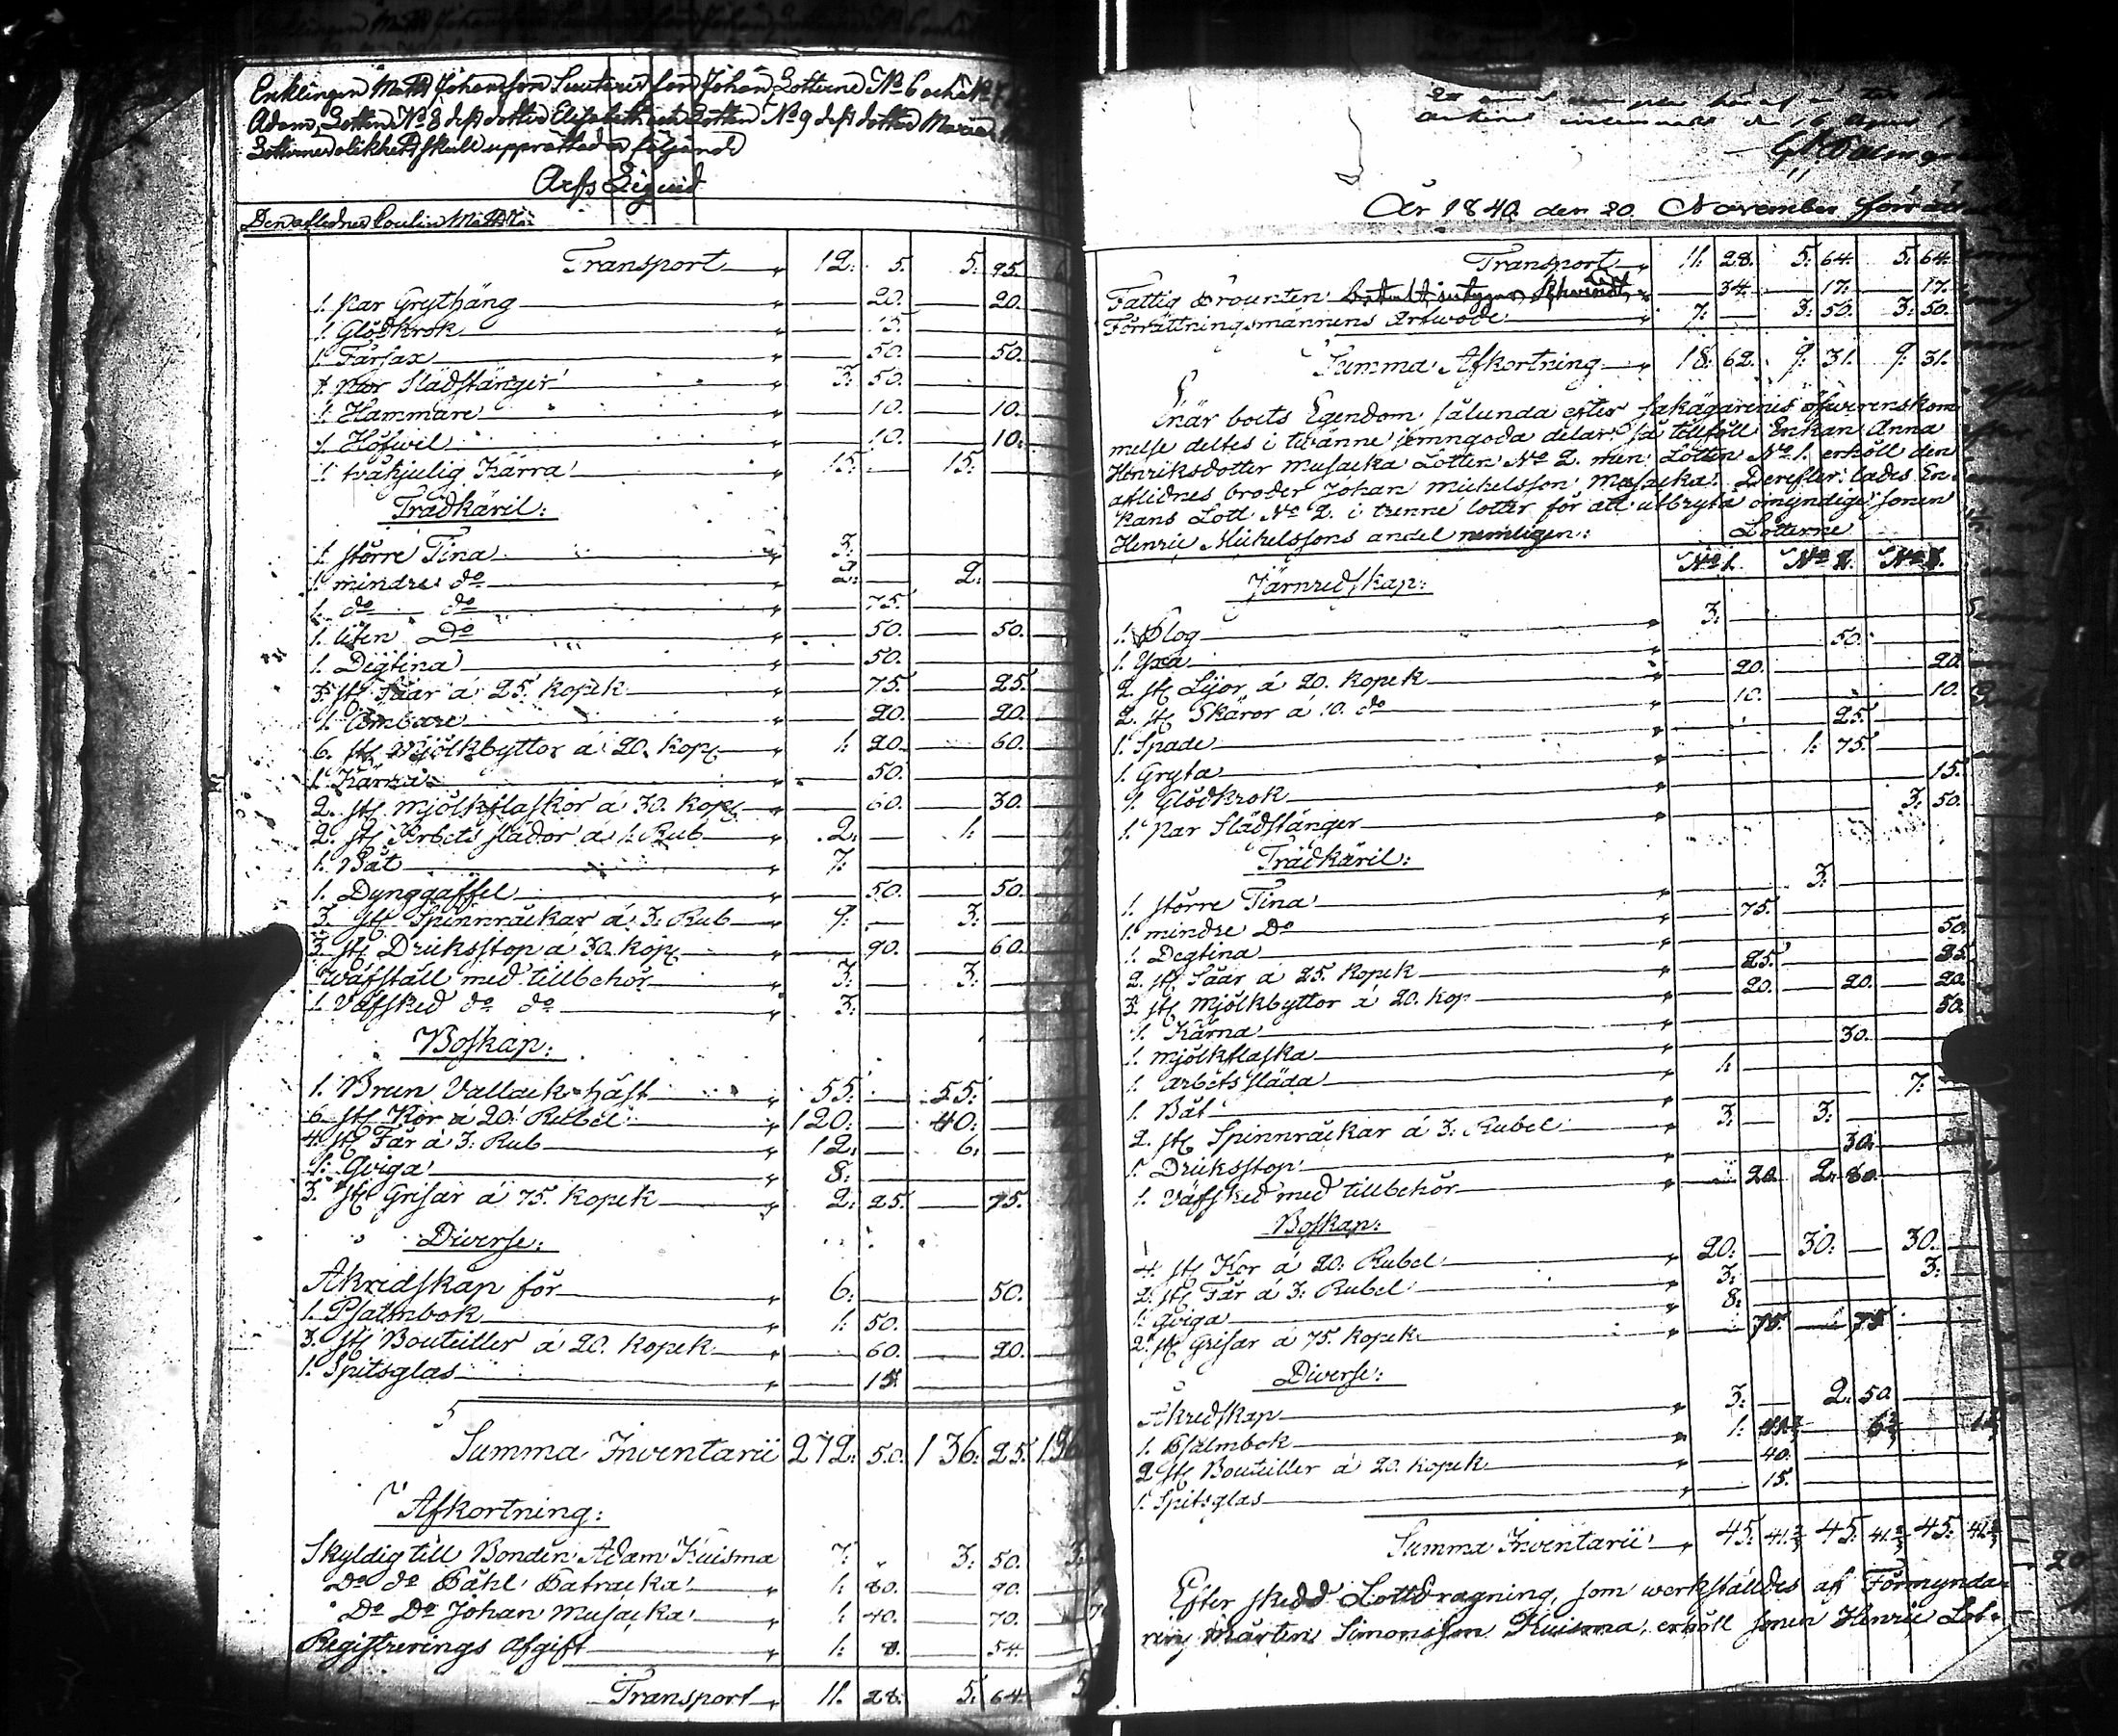 Enklingen Matts Johansson son Johan Lotterne No 6 och No 7
Adam, Lotten No 8 dess dotter Elisabeth och Lotten No 9 dess dotter Maria
Lotternes olikhet skull upprättades följande
Arfs Liqvid
Den aflednes Matts
Transport 12. 5. 5. 95.
1. Par Grythäng 20. 20.
1. Glödkrok 15.
1. Fårsax 50. 50.
1. Par Slädstänger 3. 50.
1. Hammare 10. 10.
1. Höfwel 10. 10.
1. tvåhjulig Kärra 15. 15.
Trädkäril:
1. större Tina 3.
1. mindre do 2. 2.
1. do do 75.
1. liten Do 50. 50.
1. Degtina 50.
3. st Såar á 25. Kopek 75. 25.
1. Ämbare 20. 20.
6. st Mjölkbyttor á 20. Kop 1. 20. 60.
1. Kärna 50.
2. st Mjölkflaskor á 30. Kop 60. 30.
2. st Arbets slädor á 1. Rub 2. 1.
1. Båt 7.
1. Dynggaffel 50. 50.
3. st Spinnråckar á 3. Rub 9. 3.
3. st Dricksstop á 30. Kop 90. 60.
Wäfstall med tillbehör 3. 3.
1. Väfsked do do 3.
Boskap:
1. Brun Vallack häst 55. 55.
6. st Kor á 20. Rubel 120. 40.
4. st Får á 3. Rub 12. 6.
1. Qviga 8.
3. st Grisar á 75. Kopek 2. 25. 75.
Diverse:
Åkredskap för 6. 50.
1. Psalmbok 1. 50.
3. st Bouteiller á 20. Kopek 60. 20.
1. Spitsglas 15.
Summa Inventarii 272. 50. 136. 25. 136
Afkortning:
Skyldig till Bonden Adam Kuisma 7. 3. 50. 3.
Do do Påhl Patracka 1. 80. 90.
Do Do Johan Musacka 1. 40. 70.
Registrerings Afgift 1. 8. 54.
Transport 11. 28. 5. 64. 5
den 16
År 1840 den 20 November
Transport 11. 28. 5. 64. 5. 64.
Fattig Procenten 34. 17. 17.
Förrättningsmännens Arfwode 7. 3. 50. 3. 50.
Summa Afkortning 18. 62. 9. 31. 9. 31.
Enär boets Egendom sålunda efter sakägarenes öfwerenskom
melse deltes i twänne jemngoda delar så tillföll Enkan Anna
Henriksdotter Musacka Lotten No 2. men Lotten No 1. erhöll den
aflidnes broder Johan Michelsson Musacka. Derefter lades En-
kans Lott No 2. i trenne lotter för att utbryta omyndige sonen
Henric Michelssons andel nemligen:
Lotterne
Järnredskap: No 1. No 2. No 3.
1. Plog 3.
1. Yxa 50.
2. st Lijor á 20. Kopek 20. 20.
2. st Skäror á 10. do 10. 10.
1. Spade 25.
1. Gryta 1. 75.
1. Glödkrok 15.
1. Par Slädstänger 3. 50.
Trädkäril:
1. större Tina 3.
1. mindre Do 75.
1. Degtina 50.
2. st Såar á 25. Kopek 25. 25.
3. st Mjölkbyttor á 20. Kop 20. 20. 20.
1. Kärna 50.
1. Mjölkflaska 30.
1. Arbetssläda 1.
1. Båt 7.
2. st Spinnråckar á 3. Rubel 3. 3.
1. Dricksstop 30.
1. Väfsked med tillbehör 20. 2. 80.
Boskap:
4. st Kor á 20. Rubel 20. 30. 30.
2. st Får á 3. Rubel 3. 3.
1. Qviga 8.
2. st Grisar á 75. Kopek 75. 75.
Diverse:
Åkredskap 3. 2. 50.
1. Psalmbok 1.
2. st Bouteiller á 20. Kopek 40.
1. Spitsglas 15.
Summa Inventarii 45. 41⅔ 45. 41⅔ 45. 41⅔
Efter skedd Lottdragning, som werkställdes af Förmynda-
ren Mårten Simonsson Kuisma, erhöll sonen Henric Lot-